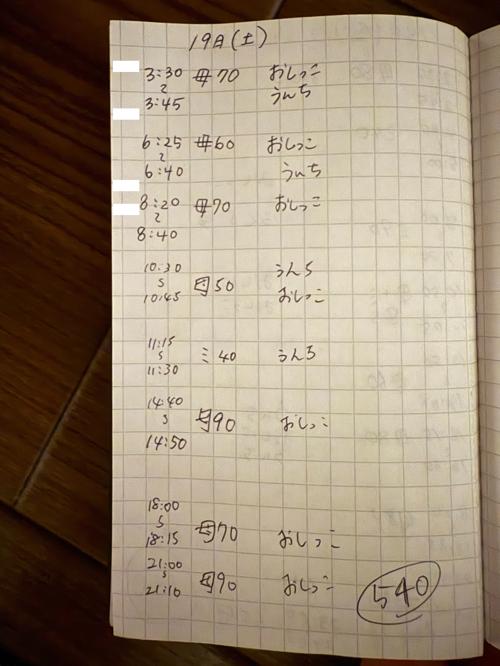 19日(土)
3:30 母70 おしっこ
~ うんち
3:45
6:25 母60 おしっこ
~
6:40 うんち
8:20 母70 おしっこ
~
8:40
10:30 うんち
~ 母50
10:45 おしっこ
11:15
~ ミ40 うんち
11:30
14:40
~ 母90 おしっこ
14:50
18:00
~ 母70
18:15 おしっこ
21:00
~ 母90 おしっこ
21:10
540